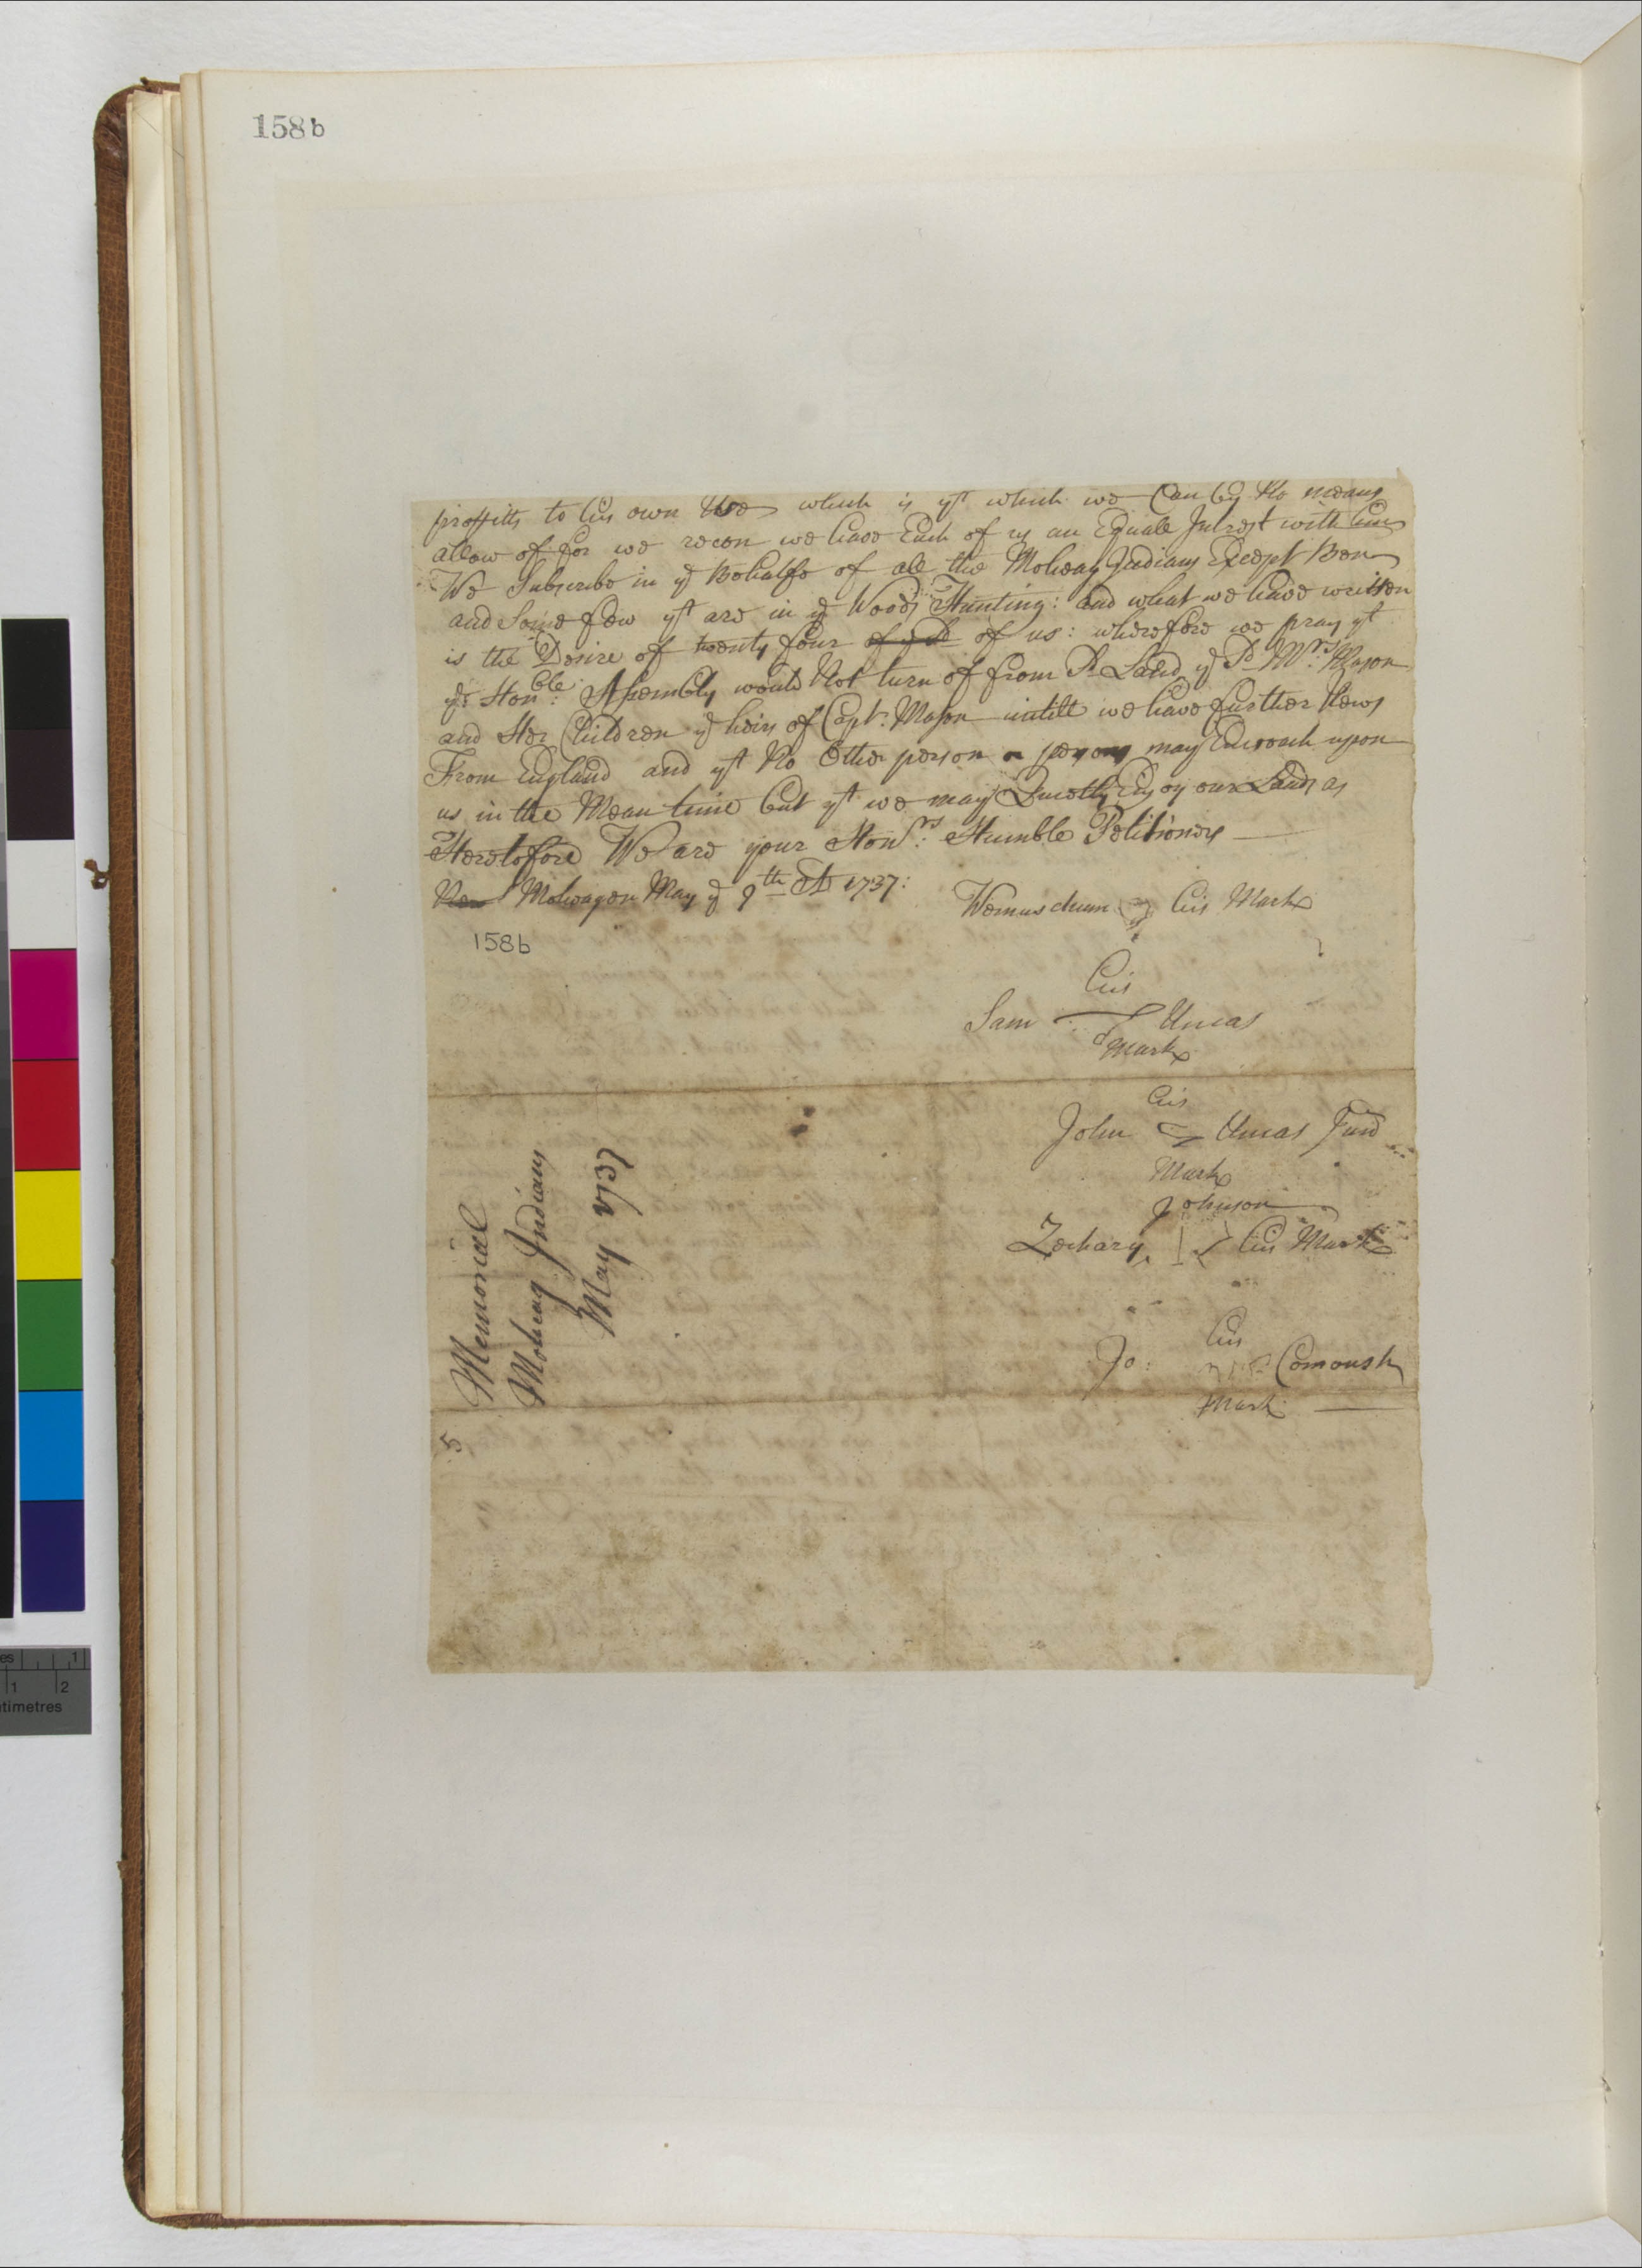 158b
proffitts to his own Use which is yt which we Can by No means
allow of for we recon we have Each of us an Equale Intrest with him
We Subscribe in ye Behalfe of all the Moheag Indians Except Ben
and Some few yt are in ye Woods Hunting: and what we have written
is the Desire of twenty four of us: wherefore we pray yt
ye Honble: Assembly would Not turn of from Sd Land ye Sd Mrs: Mason
and Her Children ye heirs of Capt: Mason untill we have further News
From England and yt No Other person or persons may Encroach upon
us in the Mean time but yt we may Quietly Enjoy our Lands as
Heretofore We are your Honrs: Humble Petitioners
Mohegon May ye 9th AD 1737:
Wemuschum his Mark
158b
his
Sam Uncas
Mark
his
John Uncas
Mark
Johnson
Zachary his Mark
his
Jo: Comoush
Mark
Memorial
Moheag Indians
May 1737
5
es 1
1 2
timetres